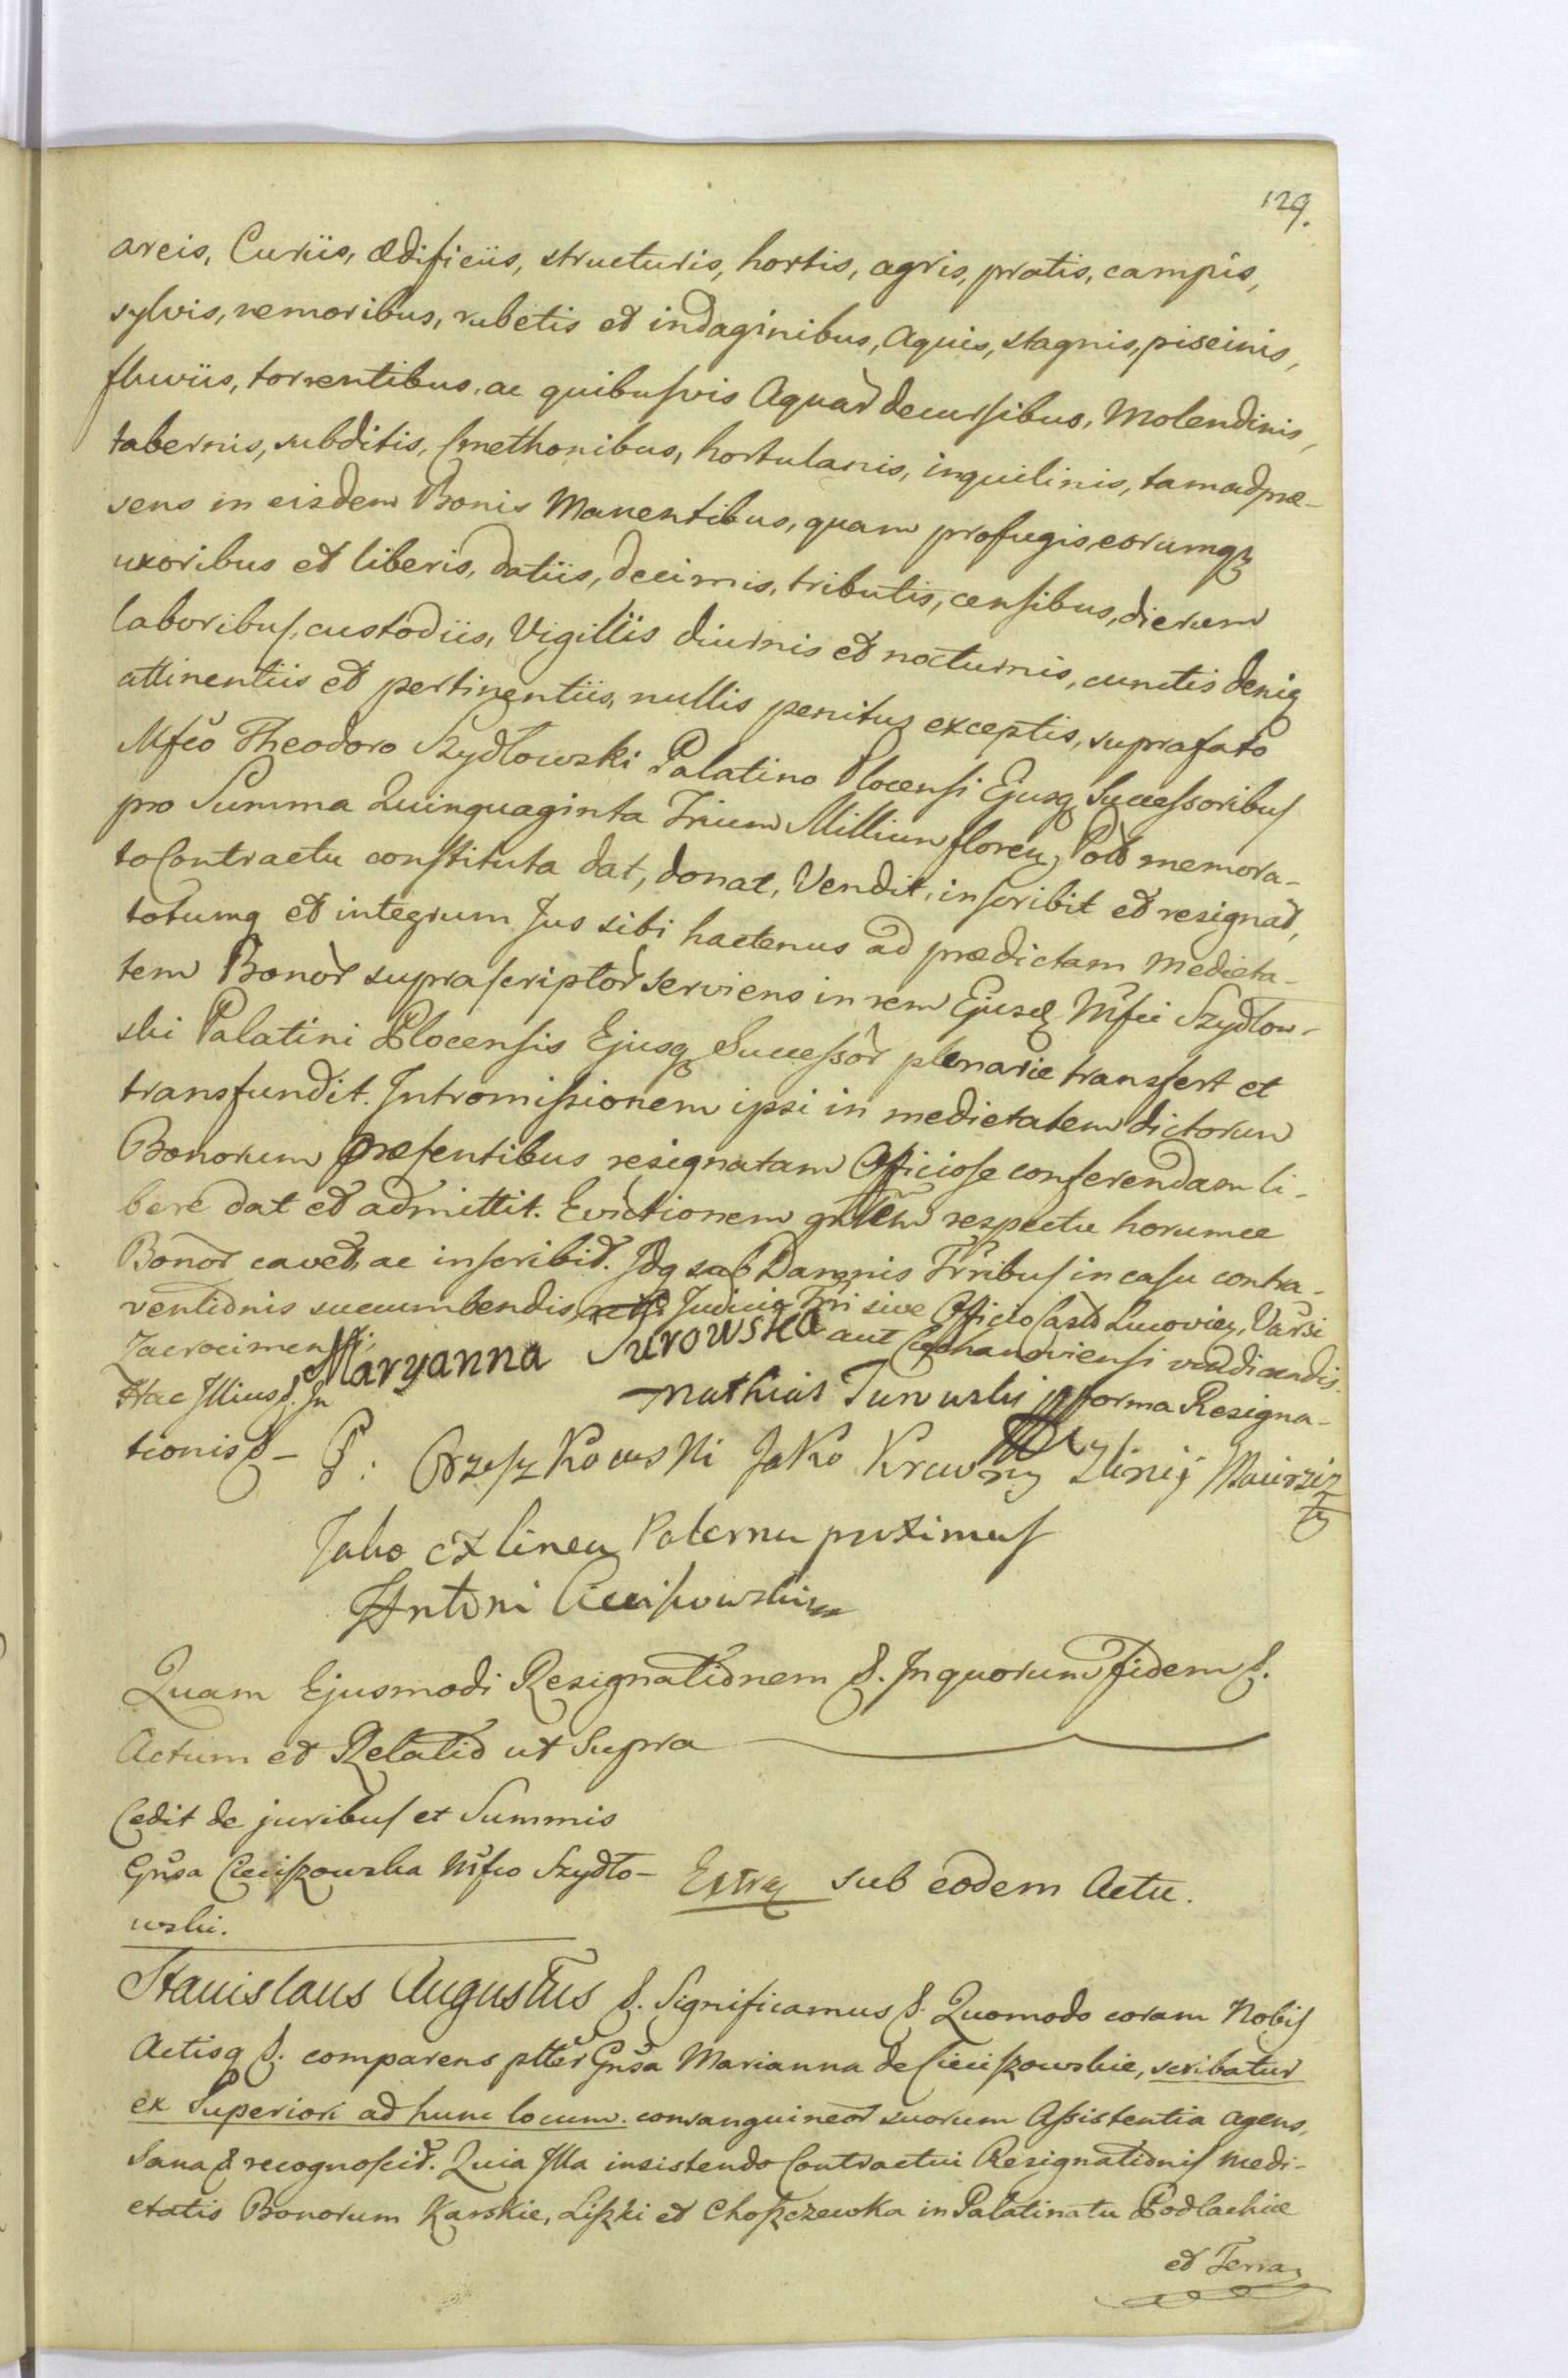 129.
areis, Curiis, ædificiis, structuris, hortis, agris, pratis, campis,
sylvis, nemoribus, rubetis et indaginibus, aquis, stagnis, piscinis,
fluviis, torrentibus, ac quibusvis Aquar decursibus, Molendinis,
tabernis, subditis, Cmethonibus, hortulanis, inquilinis, tam ad præ-
sens in eisdem Bonis Manentibus, quam profugis, eorumq
uxoribus et liberis, datiis, decimis, tributis, censibus, dierum
laboribus, custodiis, Vigiliis diurnis et nocturnis, cunctis deniq
attinentiis et pertinentiis, nullis penitus exceptis, suprafato
Mfco Theodoro Szydłowski Palatino Plocensi Ejusq Successoribus
pro Summa Quinquaginta Trium Millium floren Pol memora-
to Contractu constituta dat, donat, Vendit, inscribit et resignat,
totumq et integrum Jus sibi hactenus ad prædictam Medieta-
tem Bonor suprascriptor serviens in rem Ejusd Mfci Szydłow-
ski Palatini Plocensis Ejusq Successor plenarie transfert et
transfundit. Intromissionem ipsi in medietatem dictorum
Bonorum præsentibus resignatam Officiose conferendam li-
bere dat et admittit. Evictionem gnlem respectu horumce
Bonor cavet, ac inscribit. Idq sub Damnis Trribus in casu contra-
ventionis succumbendis Judicio Trri sive Officio Castr Lucovien, Varsi
Zacrocimensi, Maryanna Surowska aut Ciechanoviensi vindicandis.
Hac Illius &. In Mathias Turowski forma Resigna-
tionis &- P: Orzeszkowski Jako Krewny Zlinij Macirzis
ty
Jako ex linea Paterna proximus
Antoni Cieciszowski
Quam Ejusmodi Resignationem &. In quorum fidem &.
Actum et Relatio ut Supra
Cedit de juribus et Summis
Gnsa Cieciszowska Mfco Szydło- Extra sub eodem Actu.
wski.
Stanislaus Augustus &. Significamus &. Quomodo coram Nobis
Actisq &. comparens plter Gnsa Marianna de Cieciszowskie, scribatur
ex Superiori ad hunc locum. consanguineor suorum Assistentia agens,
Sana & recognoscit. Quia Illa insistendo Contractui Resignationis Medi-
etatis Bonorum Karskie, Liszki et Choszczewka in Palatinatu Podlachiæ
et Terra